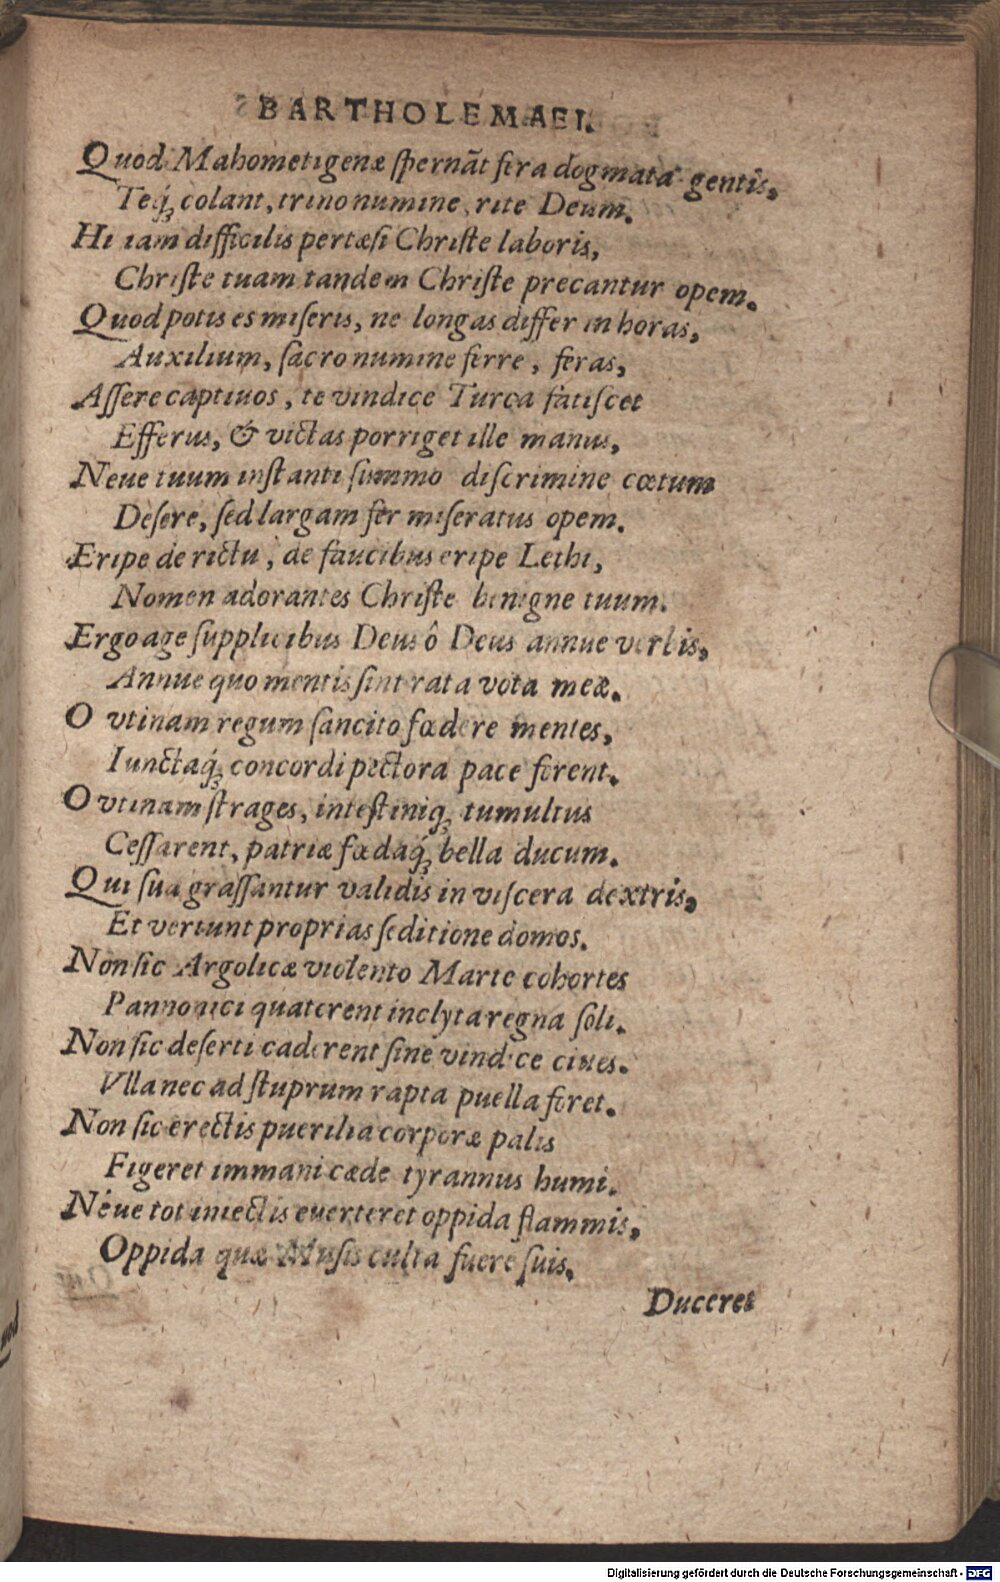 BARTHOLEMAEI.
Quod Mahometigenæ ſpernãt fera dogmata gentis,
Teq́; colant, trino numine, rite Deum.
Hi iam difficilis pertæſi Chriſte laboris,
Chriſte tuam tandem Chriſte precantur opem.
Quod potis es miſeris, ne longas differ in horas,
Auxilium, ſacro numine ferre, feras,
Aſſere captiuos, te vindice Turca fatiſcet
Efferus, & victas porriget ille manus,
Neue tuum inſtanti ſummo diſcrimine cœtum
Deſere, ſed largam fer miſeratus opem.
Eripe de rictu, de faucibus eripe Lethi,
Nomen adorantes Chriſte benigne tuum.
Ergo age ſupplicibus Deus ô Deus annue verbis,
Annue quo mentis ſint rata vota meæ.
O vtinam regum ſancito fœdere mentes,
Iunctaq́; concordi pectora pace forent.
O vtinam ſtrages, inteſtiniq; tumultus
Ceſſarent, patriæ fœdaq́; bella ducum.
Qui ſua graſſantur validis in viſcera dextris,
Et vertunt proprias ſeditione domos.
Non ſic Argolicæ violento Marte cohortes
Pannonici quaterent inclyta regna ſoli.
Non ſic deſerti caderent ſine vindice ciues.
Vlla nec ad ſtuprum rapta puella foret.
Non ſic erectis puerilia corpora palis
Figeret immani cæde tyrannus humi.
Néue tot iniectis euerteret oppida flammis,
Oppida quæ Muſis culta fuere ſuis.
Duceret
Digitalisierung gefördert durch die Deutsche Forschungsgemeinschaft - DFG